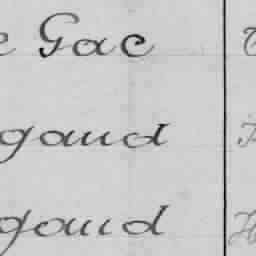 e Gac
gaud
gaud